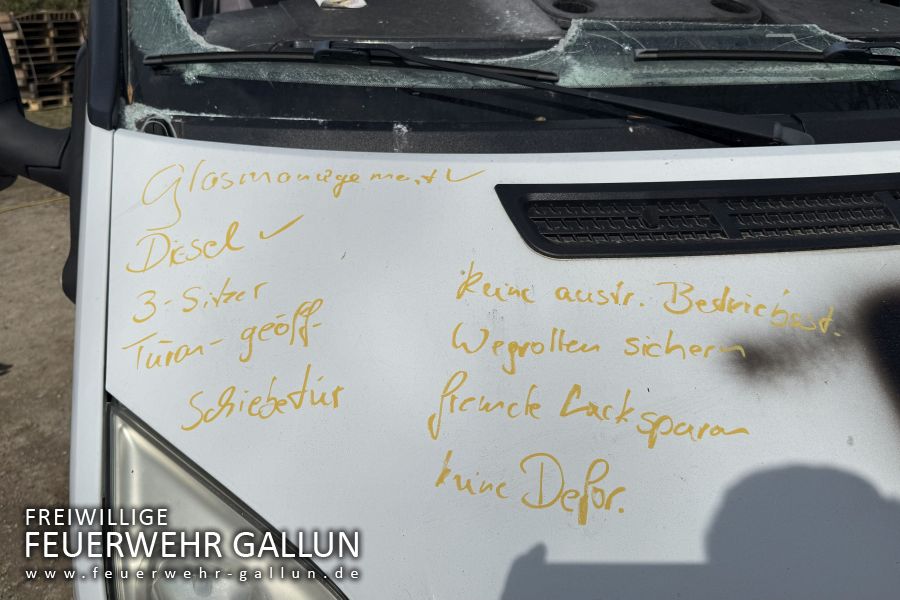 Glasmanagement ✓
Diesel ✓
3-Sitzer
Türen-geöff-
Schiebetür
keine austr. Betriebsst.
Wegrollen sichern
fremde Lackspuren
keine Defor.
FREIWILLIGE
FEUERWEHR GALLUN
www.feuerwehr-gallun.de